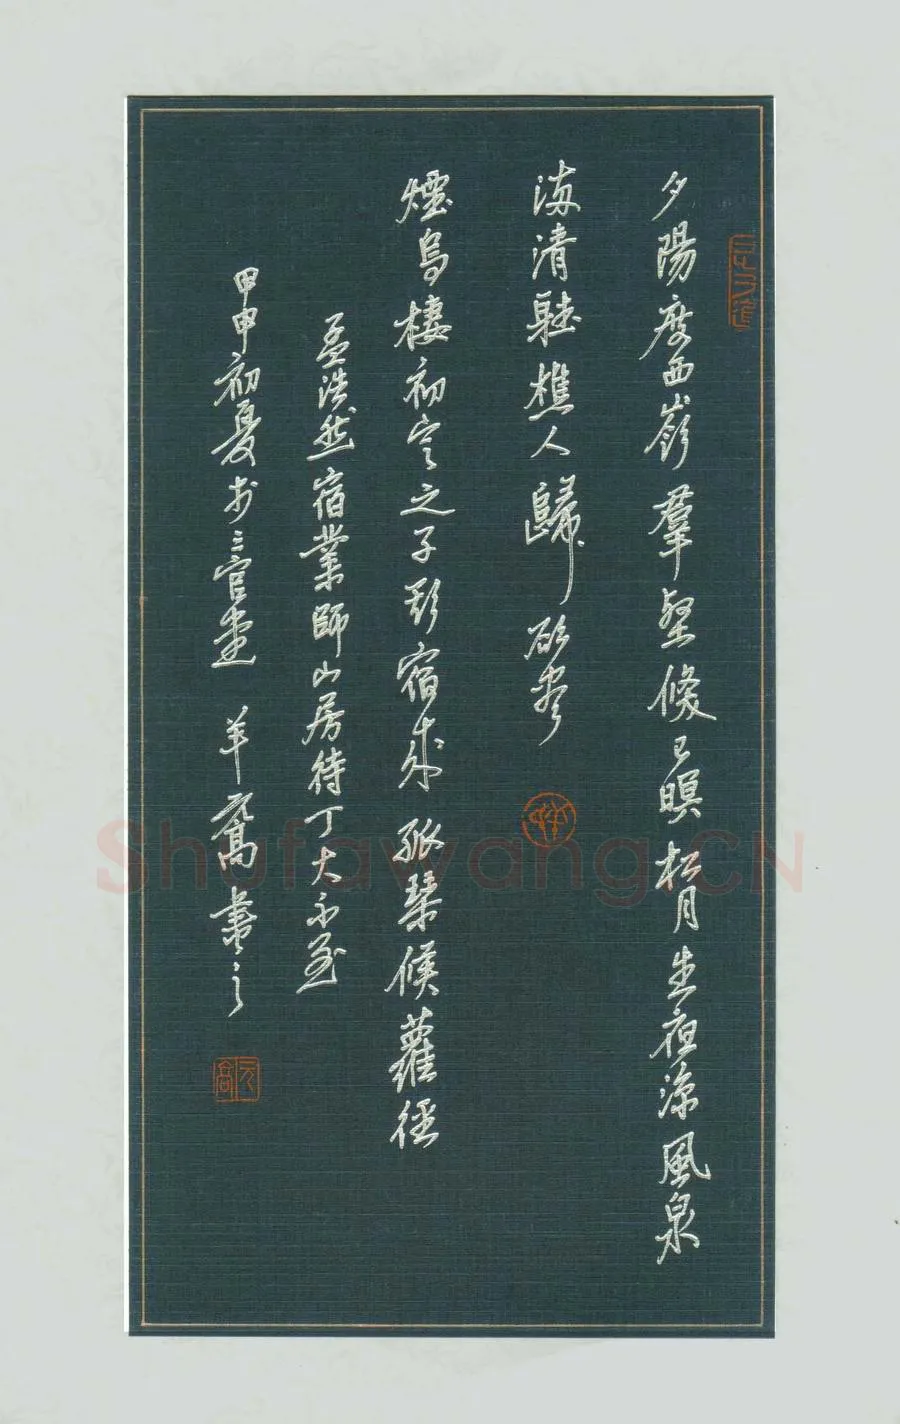 夕陽度西嶺羣壑倏已暝松月生夜涼風泉
滿清聽樵人歸欲盡
煙鳥棲初定之子期宿來孤琴候蘿徑
孟浩然宿業師山房待丁大不至
甲申初夏於三官堂羊元高書之
元高
Shufawang.CN